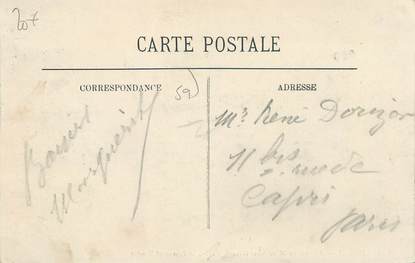 207
CARTE POSTALE
CORRESPONDANCE
59
ADRESSE
Baisers
Marguerite
Mr René
11 bis
rue de
Capri
Paris